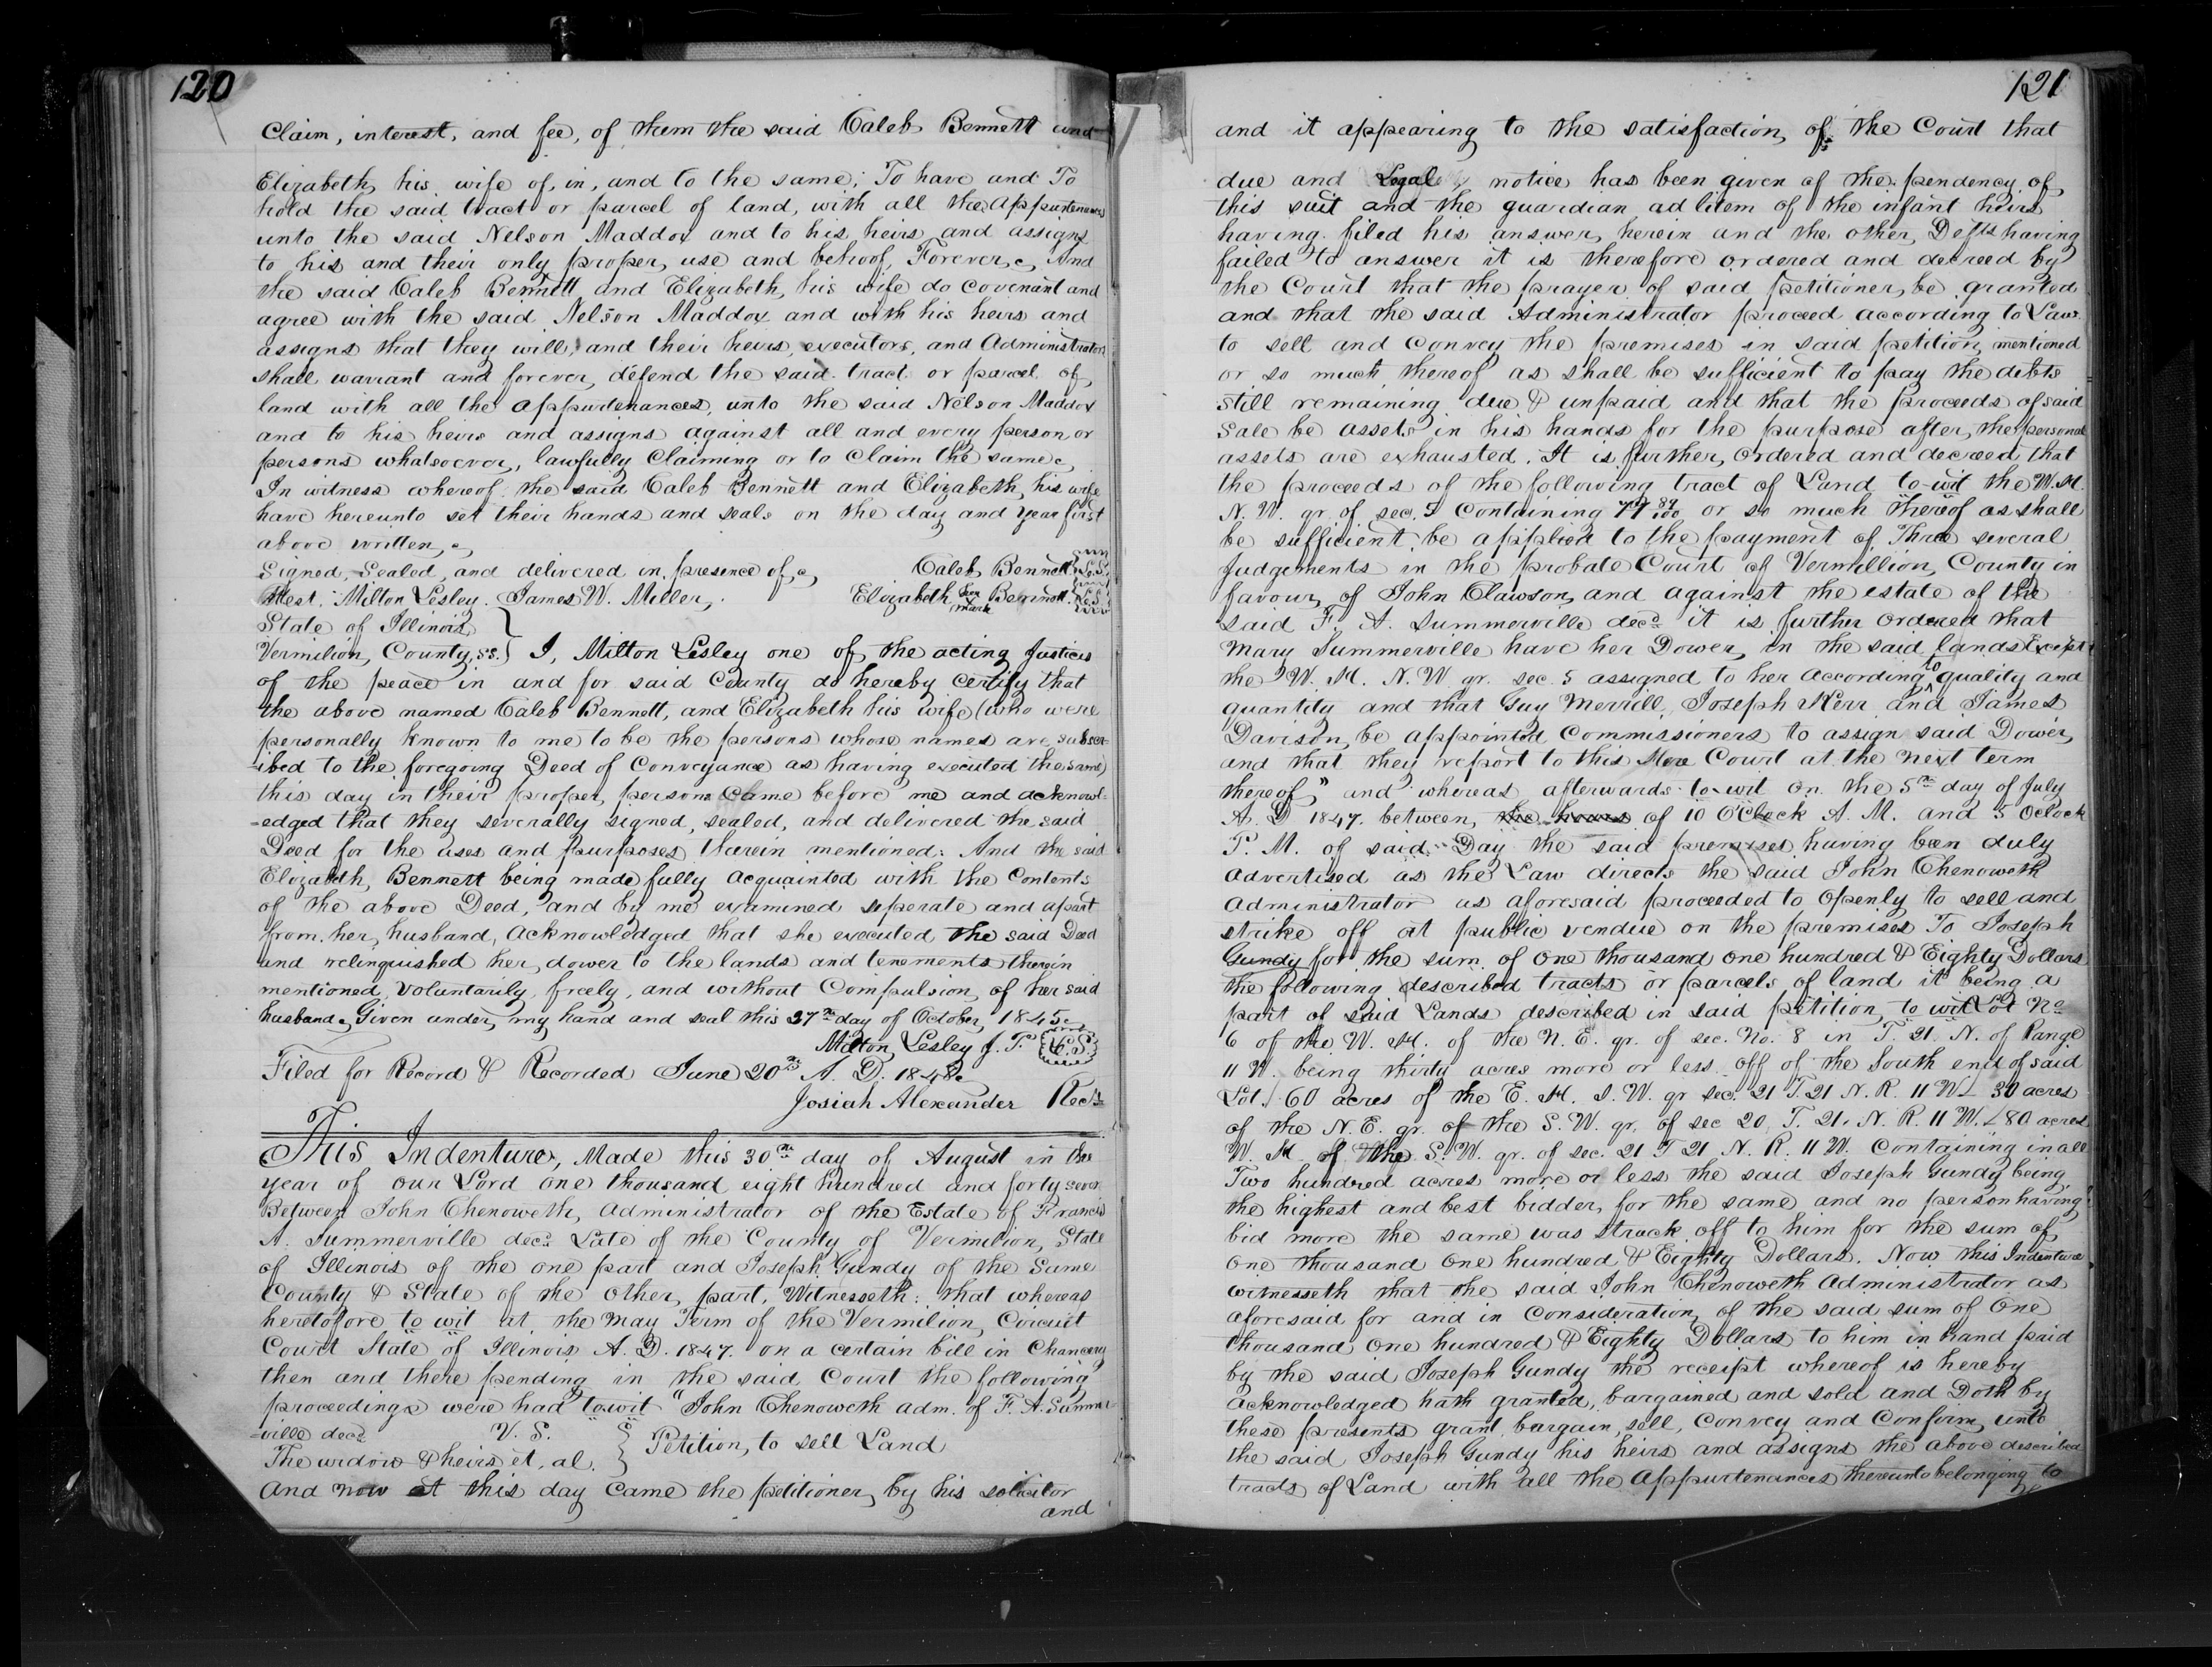 120
Claim, interest, and fee, of them the said Caleb Bennett and
Elizabeth his wife of, in, and to the same; To have and To
hold the said tract or parcel of land, with all the appurtenances
unto the said Nelson Maddox and to his heirs and assigns
to his and their only proper use and behoof, Forever, And
the said Caleb Bennett and Elizabeth his wife do covenant and
agree with the said Nelson Maddox and with his heirs and
assigns that they will, and their heirs, executors, and Administrators
shall warrant and forever defend the said tract or parcel of
land with all the appurtenances, unto the said Nelson Maddox
and to his heirs and assigns against all and every person or
persons whatsoever, lawfully Claiming or to Claim the same,
In witness whereof the said Caleb Bennett and Elizabeth his wife
have hereunto set their hands and seals on the day and year first
above written,
Signed, Sealed, and delivered in presence of, Caleb Bennett {L.S.}
Attest. Milton Lesley. James W. Miller, Elizabeth her X mark Bennett {L.S.}
State of Illinois }
Vermilion County, ss. } I, Milton Lesley one of the acting Justices
of the peace in and for said County do hereby certify that
the above named Caleb Bennett, and Elizabeth his wife (who were
personally known to me to be the persons whose names are subscr-
-ibed to the foregoing Deed of Conveyance as having executed the same)
this day in their proper persons came before me and acknowl-
-edged that they severally signed, sealed, and delivered the said
Deed for the uses and purposes therein mentioned: And the said
Elizabeth Bennett being made fully acquainted with the Contents
of the above Deed, and by me examined seperate and apart
from her husband, acknowledged that she executed the said Deed
and relinquished her dower to the lands and tenements therein
mentioned, voluntarily, freely, and without Compulsion of her said
husband. Given under my hand and seal this 27th day of October, 1845.
Milton Lesley J. P. {L.S.}
Filed for Record & Recorded June 20th A. D. 1848.
Josiah Alexander Recr.
This Indenture, Made this 30th day of August in the
year of our Lord one thousand eight hundred and forty seven
Between John Chenoweth, administrator of the Estate of Francis
A. Summerville decd. Late of the County of Vermilion, State
of Illinois of the one part and Joseph Gundy of the Same
County & State of the other part, Witnesseth: that whereas
heretofore to wit at the May Term of the Vermilion Circuit
Court State of Illinois A. D. 1847. on a certain bill in Chancery
then and there pending in the said Court the following
proceedings were had to wit "John Chenoweth adm. of F. A. Summer-
-ville decd. V. S. }
The widow & heirs et. al. } Petition, to sell Land
And now at this day came the petitioner by his solicitor
and
121
and it appearing to the satisfaction of the Court that
due and Legal notice has been given of the pendency of
this suit and the guardian ad litem of the infant heirs
having filed his answer herein and the other Defts having
failed to answer it is therefore ordered and decreed by
the Court that the prayer of said petitioner be granted
and that the said Administrator proceed according to Law
to sell and Convey the premises in said petition mentioned
or so much thereof as shall be sufficient to pay the debts
still remaining due & unpaid and that the proceeds of said
Sale be assets in his hands for the purpose after the personal
assets are exhausted. It is further ordered and decreed that
the proceeds of the following tract of Land to-wit the W. H.
N. W. qr. of sec. 5 Containing 77 89/100 or so much thereof as shall
be sufficient, be applied to the payment of Three several
Judgements in the probate Court of Vermillion County in
favour of John Clawson and against the estate of the
said F. A. Summerville decd. it is further ordered that
Mary Summerville have her Dower in the said lands Except
the W. H. N. W qr. sec. 5 assigned to her according to quality and
quantity and that Guy Merrill, Joseph Kerr and James
Davison be appointed Commissioners to assign said Dower
and that they report to this Court at the next term
thereof" and whereas afterwards to-wit on the 5th day of July
A. D 1847. between the hours of 10 O'Clock A. M. and 5 Oclock
P. M. of said Day the said premises having been duly
advertised as the Law directs the said John Chenoweth
administrator as aforesaid proceeded to openly to sell and
strike off at public vendue on the premises To Joseph
Gundy for the sum of one thousand one hundred & Eighty Dollars
the following described tracts or parcels of land it being a
part of said Lands described in said petition, to wit Lot No
6 of the W. H. of the N. E. qr. of sec. No. 8 in T. 21 N. of Range
11 W. being thirty acres more or less off of the South end of said
Lot / 60 acres of the E. H. S. W. qr sec. 21 T. 21 N. R. 11 W 30 acres
of the N. E. qr. of the S. W. qr. of sec 20, T. 21. N. R. 11 W. 80 acres
W. H. of the S. W. qr. of sec. 21 T 21 N. R. 11 W. Containing in all
Two hundred acres more or less the said Joseph Gundy being
the highest and best bidder for the same and no person having
bid more the same was struck off to him for the sum of
one thousand one hundred & Eighty Dollars. Now this Indenture
witnesseth that the said John Chenoweth administrator as
aforesaid for and in Consideration of the said sum of One
thousand One hundred & Eighty Dollars to him in hand paid
by the said Joseph Gundy the receipt whereof is hereby
acknowledged hath granted, bargained and sold and Doth by
these presents grant, bargain, sell, Convey and Confirm unto
the said Joseph Gundy his heirs and assigns the above described
tracts of Land with all the appurtenances thereunto belonging to